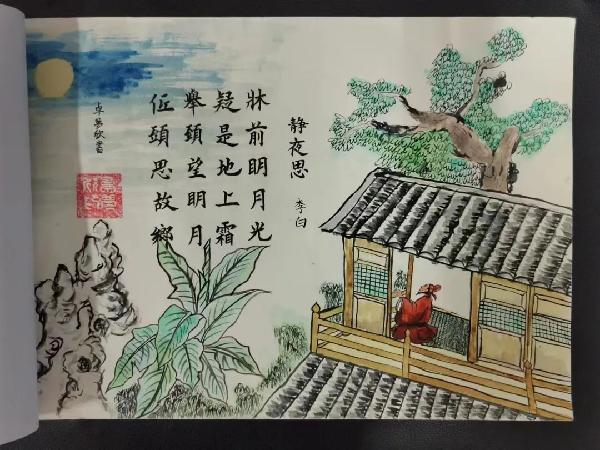 静夜思
李白
牀前明月光
疑是地上霜
舉頭望明月
低頭思故鄉